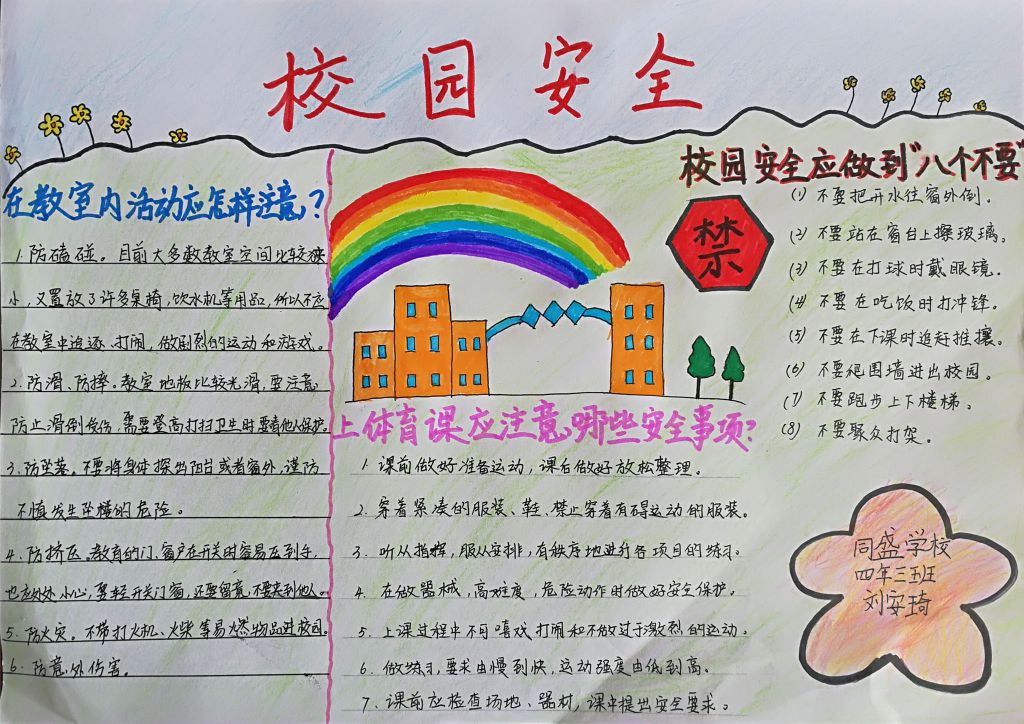 校园安全
在教室内活动应怎样注意?
1.防磕碰。目前大多数教室空间比较狭
小,又置放了许多桌椅,饮水机等用品,所以不应
在教室中追逐、打闹,做剧烈的运动和游戏。
2.防滑、防摔。教室地板比较光滑,要注意
防止滑倒受伤,需要登高打扫卫生时要有他人保护。
3.防坠落。不要将身体探出阳台或者窗外,谨防
不慎发生坠楼的危险。
4.防挤压。教育的门、窗户在开关时容易压到手,
也应处处小心,要轻开关门窗,还要留意,不要夹到他人。
5.防火灾。不带打火机、火柴等易燃物品进校园。
6.防意外伤害。
上体育课应注意哪些安全事项?
1.课前做好准备运动,课后做好放松整理。
2.穿着紧凑的服装、鞋、禁止穿着有碍运动的服装。
3.听从指挥,服从安排,有秩序地进行各项目的练习。
4.在做器械,高难度,危险动作时做好安全保护。
5.上课过程中不可嘻戏打闹和不做过于激烈的运动。
6.做练习,要求由慢到快,运动强度由低到高。
7.课前应检查场地、器材,课中提出安全要求。
校园安全应做到"八个不要"
禁
(1)不要把开水往窗外倒。
(2)不要站在窗台上擦玻璃。
(3)不要在打球时戴眼镜。
(4)不要在吃饭时打冲锋。
(5)不要在下课时追赶推攘。
(6)不要爬围墙进出校园。
(7)不要跑步上下楼梯。
(8)不要聚众打架。
同盛学校
四年三班
刘安琦